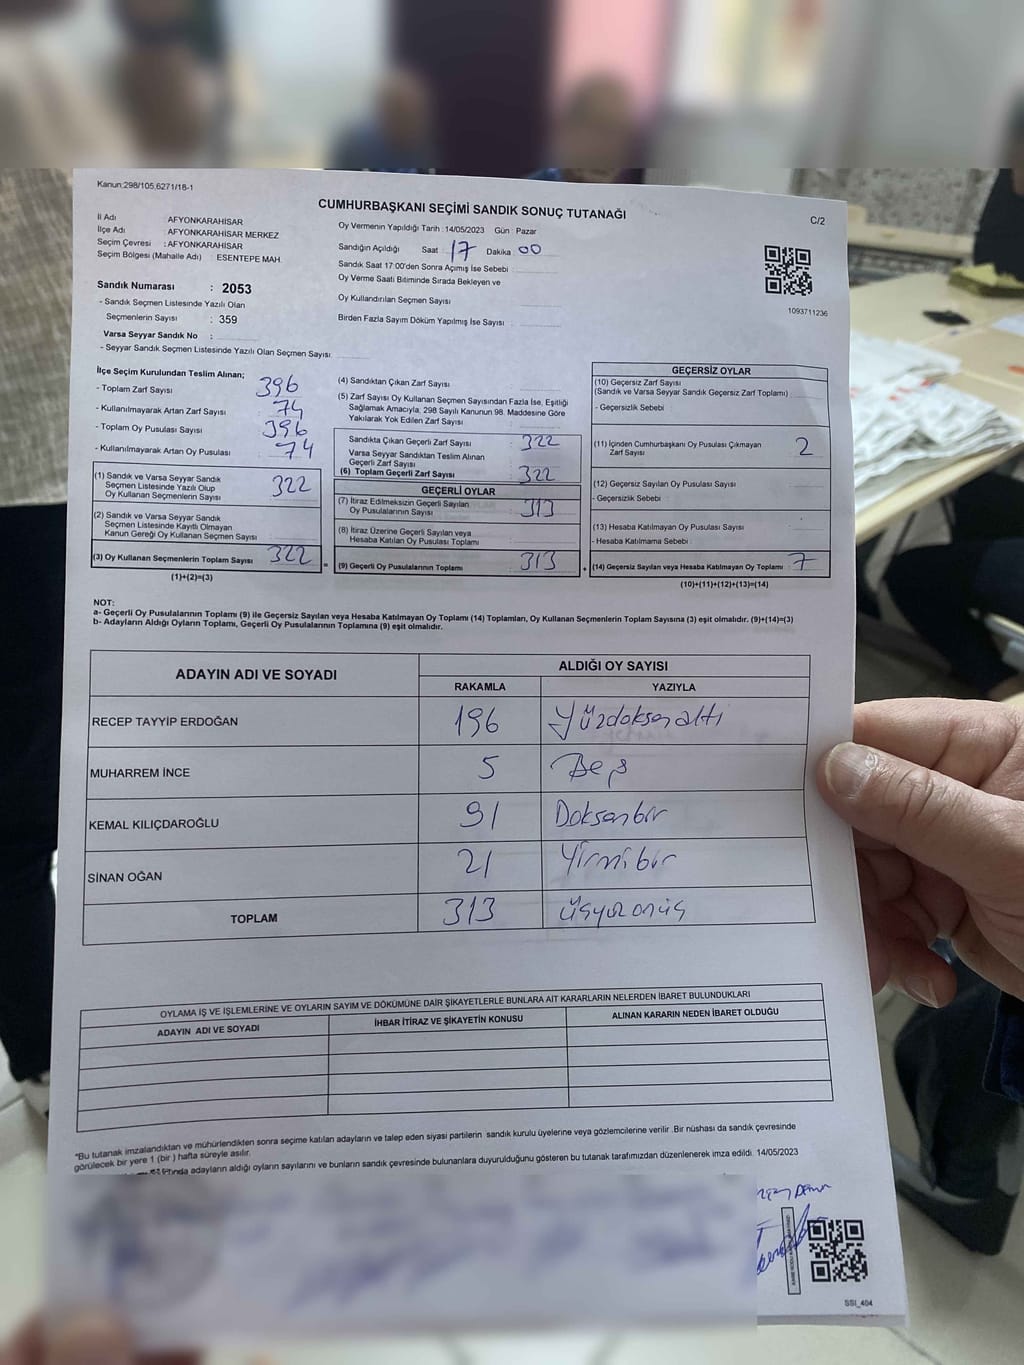 Kanun:298/105,6271/18-1
CUMHURBAŞKANI SEÇİMİ SANDIK SONUÇ TUTANAĞI
C/2
İl Adı : AFYONKARAHİSAR
İlçe Adı : AFYONKARAHİSAR MERKEZ
Seçim Çevresi : AFYONKARAHİSAR
Seçim Bölgesi (Mahalle Adı) : ESENTEPE MAH.
Oy Vermenin Yapıldığı Tarih : 14/05/2023 Gün : Pazar
Sandığın Açıldığı Saat : 17 Dakika : 00
Sandık Saat 17:00'den Sonra Açımış İse Sebebi :
Oy Verme Saati Bitiminde Sırada Bekleyen ve
Oy Kullandırılan Seçmen Sayısı :
Birden Fazla Sayım Döküm Yapılmış İse Sayısı :
1093711236
Sandık Numarası : 2053
- Sandık Seçmen Listesinde Yazılı Olan
Seçmenlerin Sayısı : 359
Varsa Seyyar Sandık No :
- Seyyar Sandık Seçmen Listesinde Yazılı Olan Seçmen Sayısı:
İlçe Seçim Kurulundan Teslim Alınan;
- Toplam Zarf Sayısı : 396
- Kullanılmayarak Artan Zarf Sayısı : 74
- Toplam Oy Pusulası Sayısı : 396
- Kullanılmayarak Artan Oy Pusulası : 74
(1) Sandık ve Varsa Seyyar Sandık
Seçmen Listesinde Yazılı Olup
Oy Kullanan Seçmenlerin Sayısı : 322
(2) Sandık ve Varsa Seyyar Sandık
Seçmen Listesinde Kayıtlı Olmayan
Kanun Gereği Oy Kullanan Seçmen Sayısı :
(3) Oy Kullanan Seçmenlerin Toplam Sayısı : 322
(1)+(2)=(3)
(4) Sandıktan Çıkan Zarf Sayısı :
(5) Zarf Sayısı Oy Kullanan Seçmen Sayısından Fazla İse, Eşitliği
Sağlamak Amacıyla, 298 Sayılı Kanunun 98. Maddesine Göre
Yakılarak Yok Edilen Zarf Sayısı :
Sandıkta Çıkan Geçerli Zarf Sayısı : 322
Varsa Seyyar Sandıktan Teslim Alınan
Geçerli Zarf Sayısı :
(6) Toplam Geçerli Zarf Sayısı : 322
GEÇERLİ OYLAR
(7) İtiraz Edilmeksizin Geçerli Sayılan
Oy Pusulalarının Sayısı : 313
(8) İtiraz Üzerine Geçerli Sayılan veya
Hesaba Katılan Oy Pusulası Toplamı :
(9) Geçerli Oy Pusulalarının Toplamı : 313
GEÇERSİZ OYLAR
(10) Geçersiz Zarf Sayısı
(Sandık ve Varsa Seyyar Sandık Geçersiz Zarf Toplamı) :
- Geçersizlik Sebebi :
(11) İçinden Cumhurbaşkanı Oy Pusulası Çıkmayan
Zarf Sayısı : 2
(12) Geçersiz Sayılan Oy Pusulası Sayısı :
- Geçersizlik Sebebi :
(13) Hesaba Katılmayan Oy Pusulası Sayısı :
- Hesaba Katılmama Sebebi :
(14) Geçersiz Sayılan veya Hesaba Katılmayan Oy Toplamı : 7
(10)+(11)+(12)+(13)=(14)
NOT:
a- Geçerli Oy Pusulalarının Toplamı (9) ile Geçersiz Sayılan veya Hesaba Katılmayan Oy Toplamı (14) Toplamları, Oy Kullanan Seçmenlerin Toplam Sayısına (3) eşit olmalıdır. (9)+(14)=(3)
b- Adayların Aldığı Oyların Toplamı, Geçerli Oy Pusulalarının Toplamına (9) eşit olmalıdır.
ADAYIN ADI VE SOYADI ALDIĞI OY SAYISI
RAKAMLA YAZIYLA
RECEP TAYYİP ERDOĞAN 196 Yüzdoksanaltı
MUHARREM İNCE 5 Beş
KEMAL KILIÇDAROĞLU 91 Doksanbir
SİNAN OĞAN 21 Yirmibir
TOPLAM 313 üçyüzonüç
OYLAMA İŞ VE İŞLEMLERİNE VE OYLARIN SAYIM VE DÖKÜMÜNE DAİR ŞİKAYETLERLE BUNLARA AİT KARARLARIN NELERDEN İBARET BULUNDUKLARI
ADAYIN ADI VE SOYADI İHBAR İTİRAZ VE ŞİKAYETİN KONUSU ALINAN KARARIN NEDEN İBARET OLDUĞU
*Bu tutanak imzalandıktan ve mühürlendikten sonra seçime katılan adayların ve talep eden siyasi partilerin sandık kurulu üyelerine veya gözlemcilerine verilir .Bir nüshası da sandık çevresinde
görülecek bir yere 1 (bir ) hafta süreyle asılır.
adayların aldığı oyların sayılarını ve bunların sandık çevresinde bulunanlara duyurulduğunu gösteren bu tutanak tarafımızdan düzenlenerek imza edildi. 14/05/2023
SSI_404